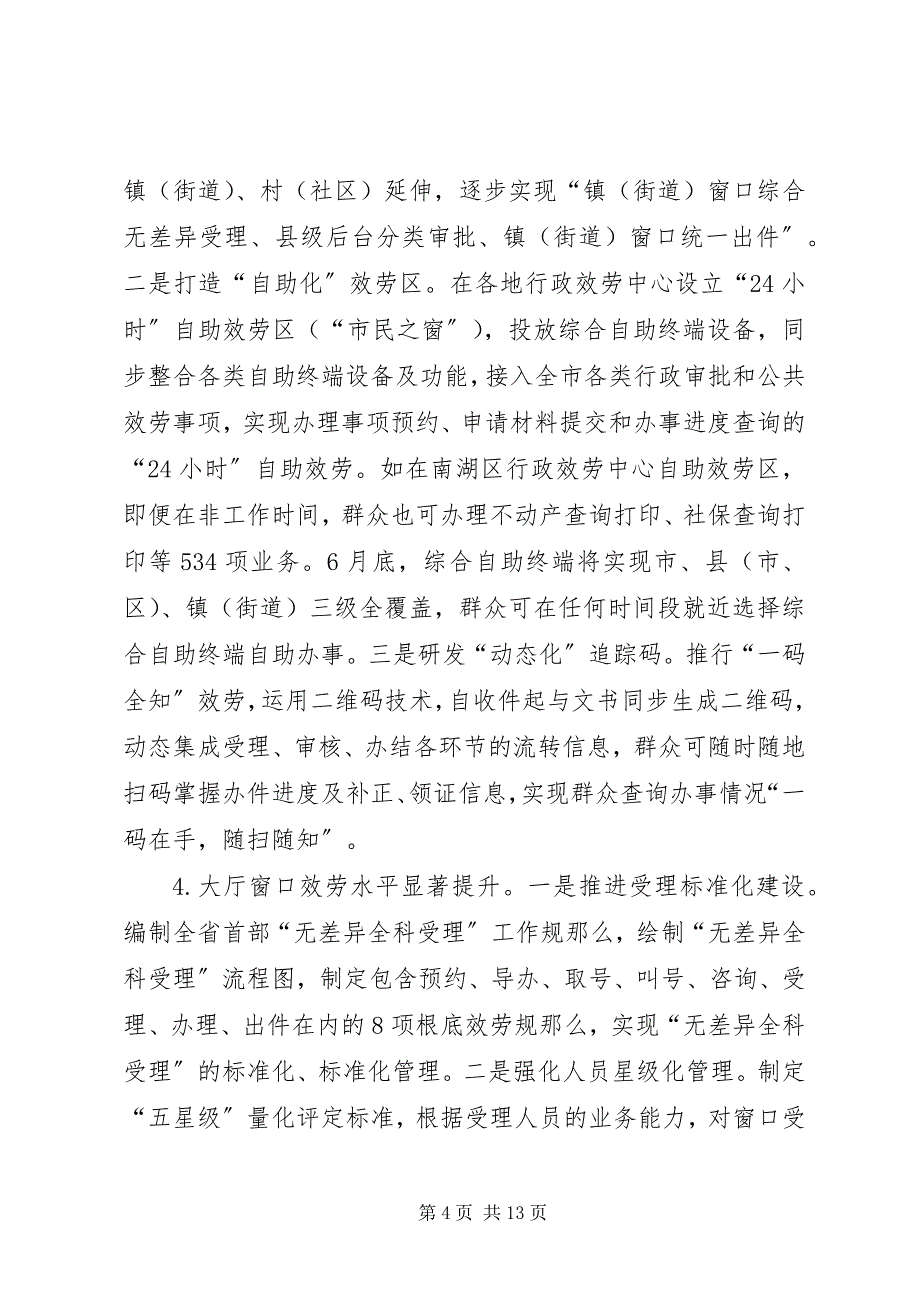 镇（街道）、村（社区）延伸，逐步实现“镇（街道）窗口综合
无差异受理、县级后台分类审批、镇（街道）窗口统一出件〞。
二是打造“自助化〞效劳区。在各地行政效劳中心设立“24 小
时〞自助效劳区（“市民之窗〞），投放综合自助终端设备，同
步整合各类自助终端设备及功能，接入全市各类行政审批和公共
效劳事项，实现办理事项预约、申请材料提交和办事进度查询的
“24 小时〞自助效劳。如在南湖区行政效劳中心自助效劳区，
即便在非工作时间，群众也可办理不动产查询打印、社保查询打
印等 534 项业务。6 月底，综合自助终端将实现市、县（市、
区）、镇（街道）三级全覆盖，群众可在任何时间段就近选择综
合自助终端自助办事。三是研发“动态化〞追踪码。推行“一码
全知〞效劳，运用二维码技术，自收件起与文书同步生成二维码，
动态集成受理、审核、办结各环节的流转信息，群众可随时随地
扫码掌握办件进度及补正、领证信息，实现群众查询办事情况“一
码在手，随扫随知〞。
4.大厅窗口效劳水平显著提升。一是推进受理标准化建设。
编制全省首部“无差异全科受理〞工作规那么，绘制“无差异全
科受理〞流程图，制定包含预约、导办、取号、叫号、咨询、受
理、办理、出件在内的 8 项根底效劳规那么，实现“无差异全科
受理〞的标准化、标准化管理。二是强化人员星级化管理。制定
“五星级〞量化评定标准，根据受理人员的业务能力，对窗口受
第 4 页 共 13 页